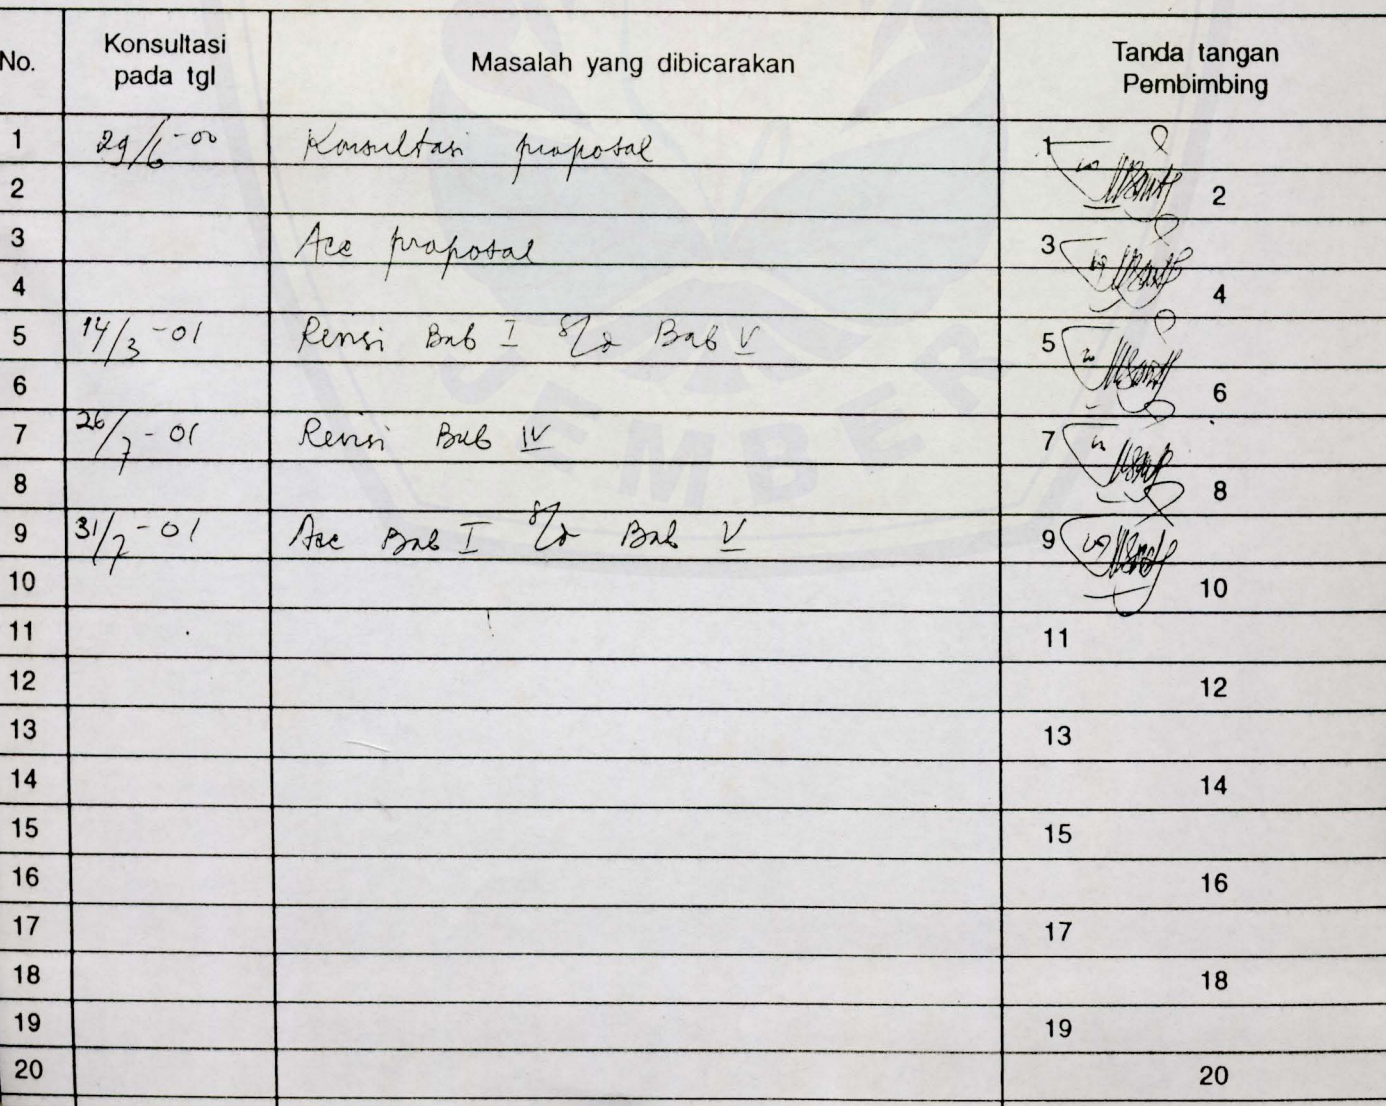 No. Konsultasi pada tgl Masalah yang dibicarakan Tanda tangan Pembimbing
1 29/6-00 Konsultasi proposal 1
2 2
3 Acc proposal 3
4 4
5 14/3-01 Revisi Bab I s/d Bab V 5
6 6
7 26/7-01 Revisi Bab IV 7
8 8
9 31/7-01 Acc Bab I s/d Bab V 9
10 10
11 11
12 12
13 13
14 14
15 15
16 16
17 17
18 18
19 19
20 20
JEMBER